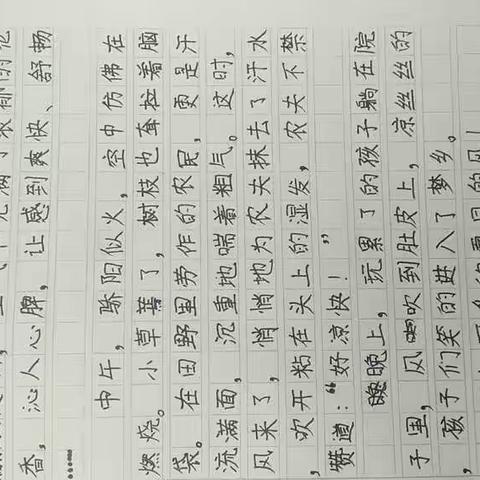 充满了浓郁的花
香，沁人心脾，让感到爽快、舒畅
……
中午，骄阳似火，空中仿佛在
燃烧。小草蔫了，树枝也耷拉着脑
袋。在田野里劳作的农民，更是汗
流满面，沉重地喘着粗气。这时，
风来了，悄悄地为农夫抹去了汗水
，吹开粘在头上的湿发，农夫不禁
赞道：“好凉快！”
晚上，玩累了的孩子躺在院
子里，风吹到肚皮上，凉丝丝的
孩子们笑的进入了梦乡。
夏日的风！